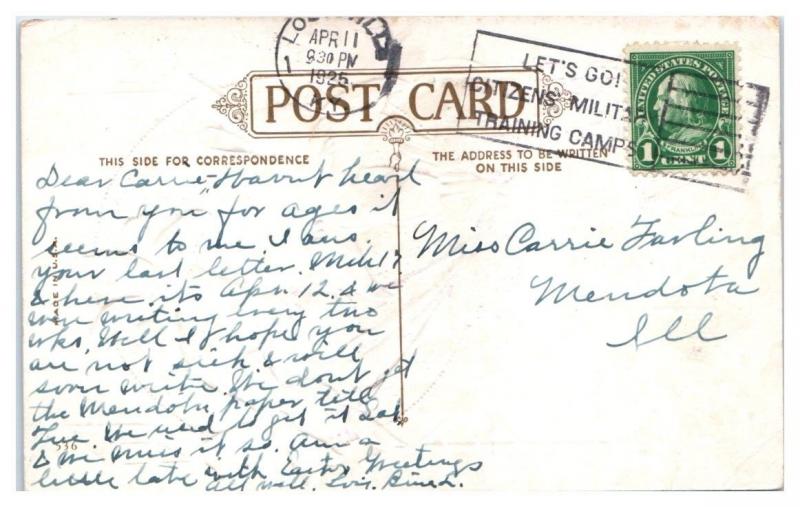 LOUISVILLE
APR 11
9 30 PM
1925
KY.
1
LET'S GO!
CITIZENS' MILITA
TRAINING CAMPS
UNITED STATES POSTAGE
FRANKLIN
1 CENT 1
POST CARD
THIS SIDE FOR CORRESPONDENCE
THE ADDRESS TO BE WRITTEN
ON THIS SIDE
MADE IN U.S.A.
536
Dear Carrie - Havn't heard
from you for ages it
seems to me. I ans.
your last letter. Mch 17
& here its Apr. 12. & we
were writing every two
wks. Well I hope you
are not sick & will
soon write. We don't get
the Mendota paper till
Tue. We used to get it Sat
& we miss it so. Am a
little late with Easter Greetings
All well. Lois.
Miss Carrie Farling
Mendota
Ill